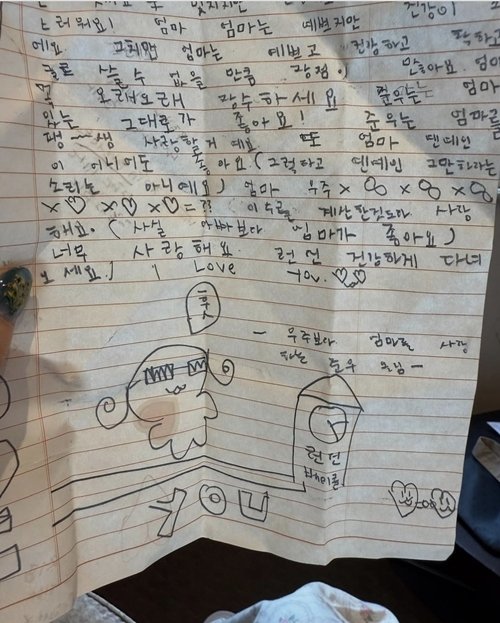 엄마 엄마는 예쁘지만 건강이
예요 그치만 엄마는 예쁘고 건강하고 착하고
살 수 없을 만큼 장점이 많아요 엄마
오래오래 장수하세요 준우는 엄마
있는 그대로가 좋아요! 준우는 엄마를
평~생 사랑할 거예요 또 엄마 연예인
이 아니어도 좋아요 (그렇다고 연예인 그만하라는
소리는 아니예요) 엄마 우주 × ∞ × ∞ × ∞
× ♡ × ♡ × ♡ = ?? 이 수를 계산한 것보다 사랑
해요. (사실 아빠보다 엄마가 좋아요)
너무 사랑해요 런던 건강하게 다녀
오세요! I Love You. ♡♡
- 우주보다 엄마를 사랑
하는 준우 올림 -
런던
YOU